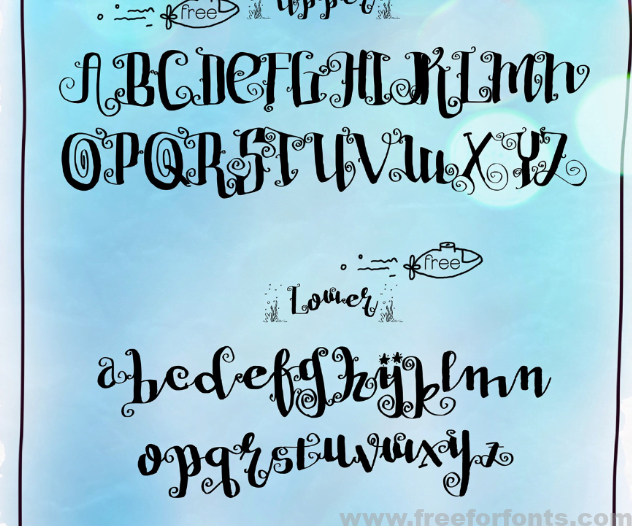 free
Upper
ABCDeFGHIJKLMN
OPQRSTUVWXYZ
free
Lower
abcdefghijklmn
opqrstuvwxyz
www.freeforfonts.com